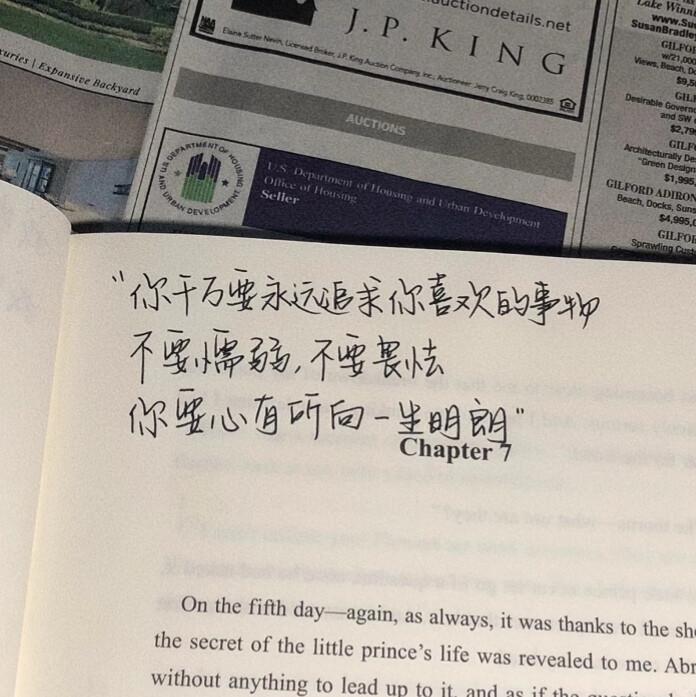 uctiondetails.net
J.P. KING
Elaine Sutter Nevin, Licensed Broker, J.P. King Auction Company, Inc.; Auctioneer: Jerry Craig King, 0002385
xuries | Expansive Backyard
AUCTIONS
U.S. DEPARTMENT OF HOUSING AND URBAN DEVELOPMENT
U.S. Department of Housing and Urban Development
Office of Housing
Seller
Lake Winni
www.Su
SusanBradley
GILFO
w/21,000
Views, Beach, Do
$9,5
GIL
Desirable Governo
and SW
$2,79
GILF
Architecturally De
"Green Design
$1,995,
GILFORD ADIRON
Beach, Docks, Suns
$4,995,0
GILFO
Sprawling Cust
"你千万要永远追求你喜欢的事物
不要懦弱,不要畏怯
你要心有所向一生明朗"
Chapter 7
On the fifth day—again, as always, it was thanks to the she
the secret of the little prince's life was revealed to me. Abr
without anything to lead up to it, and as if the question